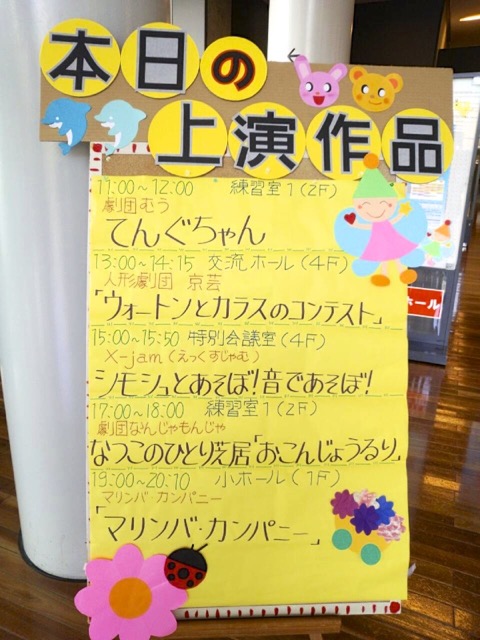 本日の
上演作品
11:00~12:00 練習室1(2F)
劇団むう
てんぐちゃん
13:00~14:15 交流ホール(4F)
人形劇団 京芸
「ウォートンとカラスのコンテスト」
15:00~15:50 特別会議室(4F)
X-jam(えっくすじゃむ)
シモシュとあそば!音であそば!
17:00~18:00 練習室1(2F)
劇団なんじゃもんじゃ
なつこのひとり芝居「おこんじょうるり」
19:00~20:10 小ホール(1F)
マリンバ・カンパニー
「マリンバ・カンパニー」
ホール